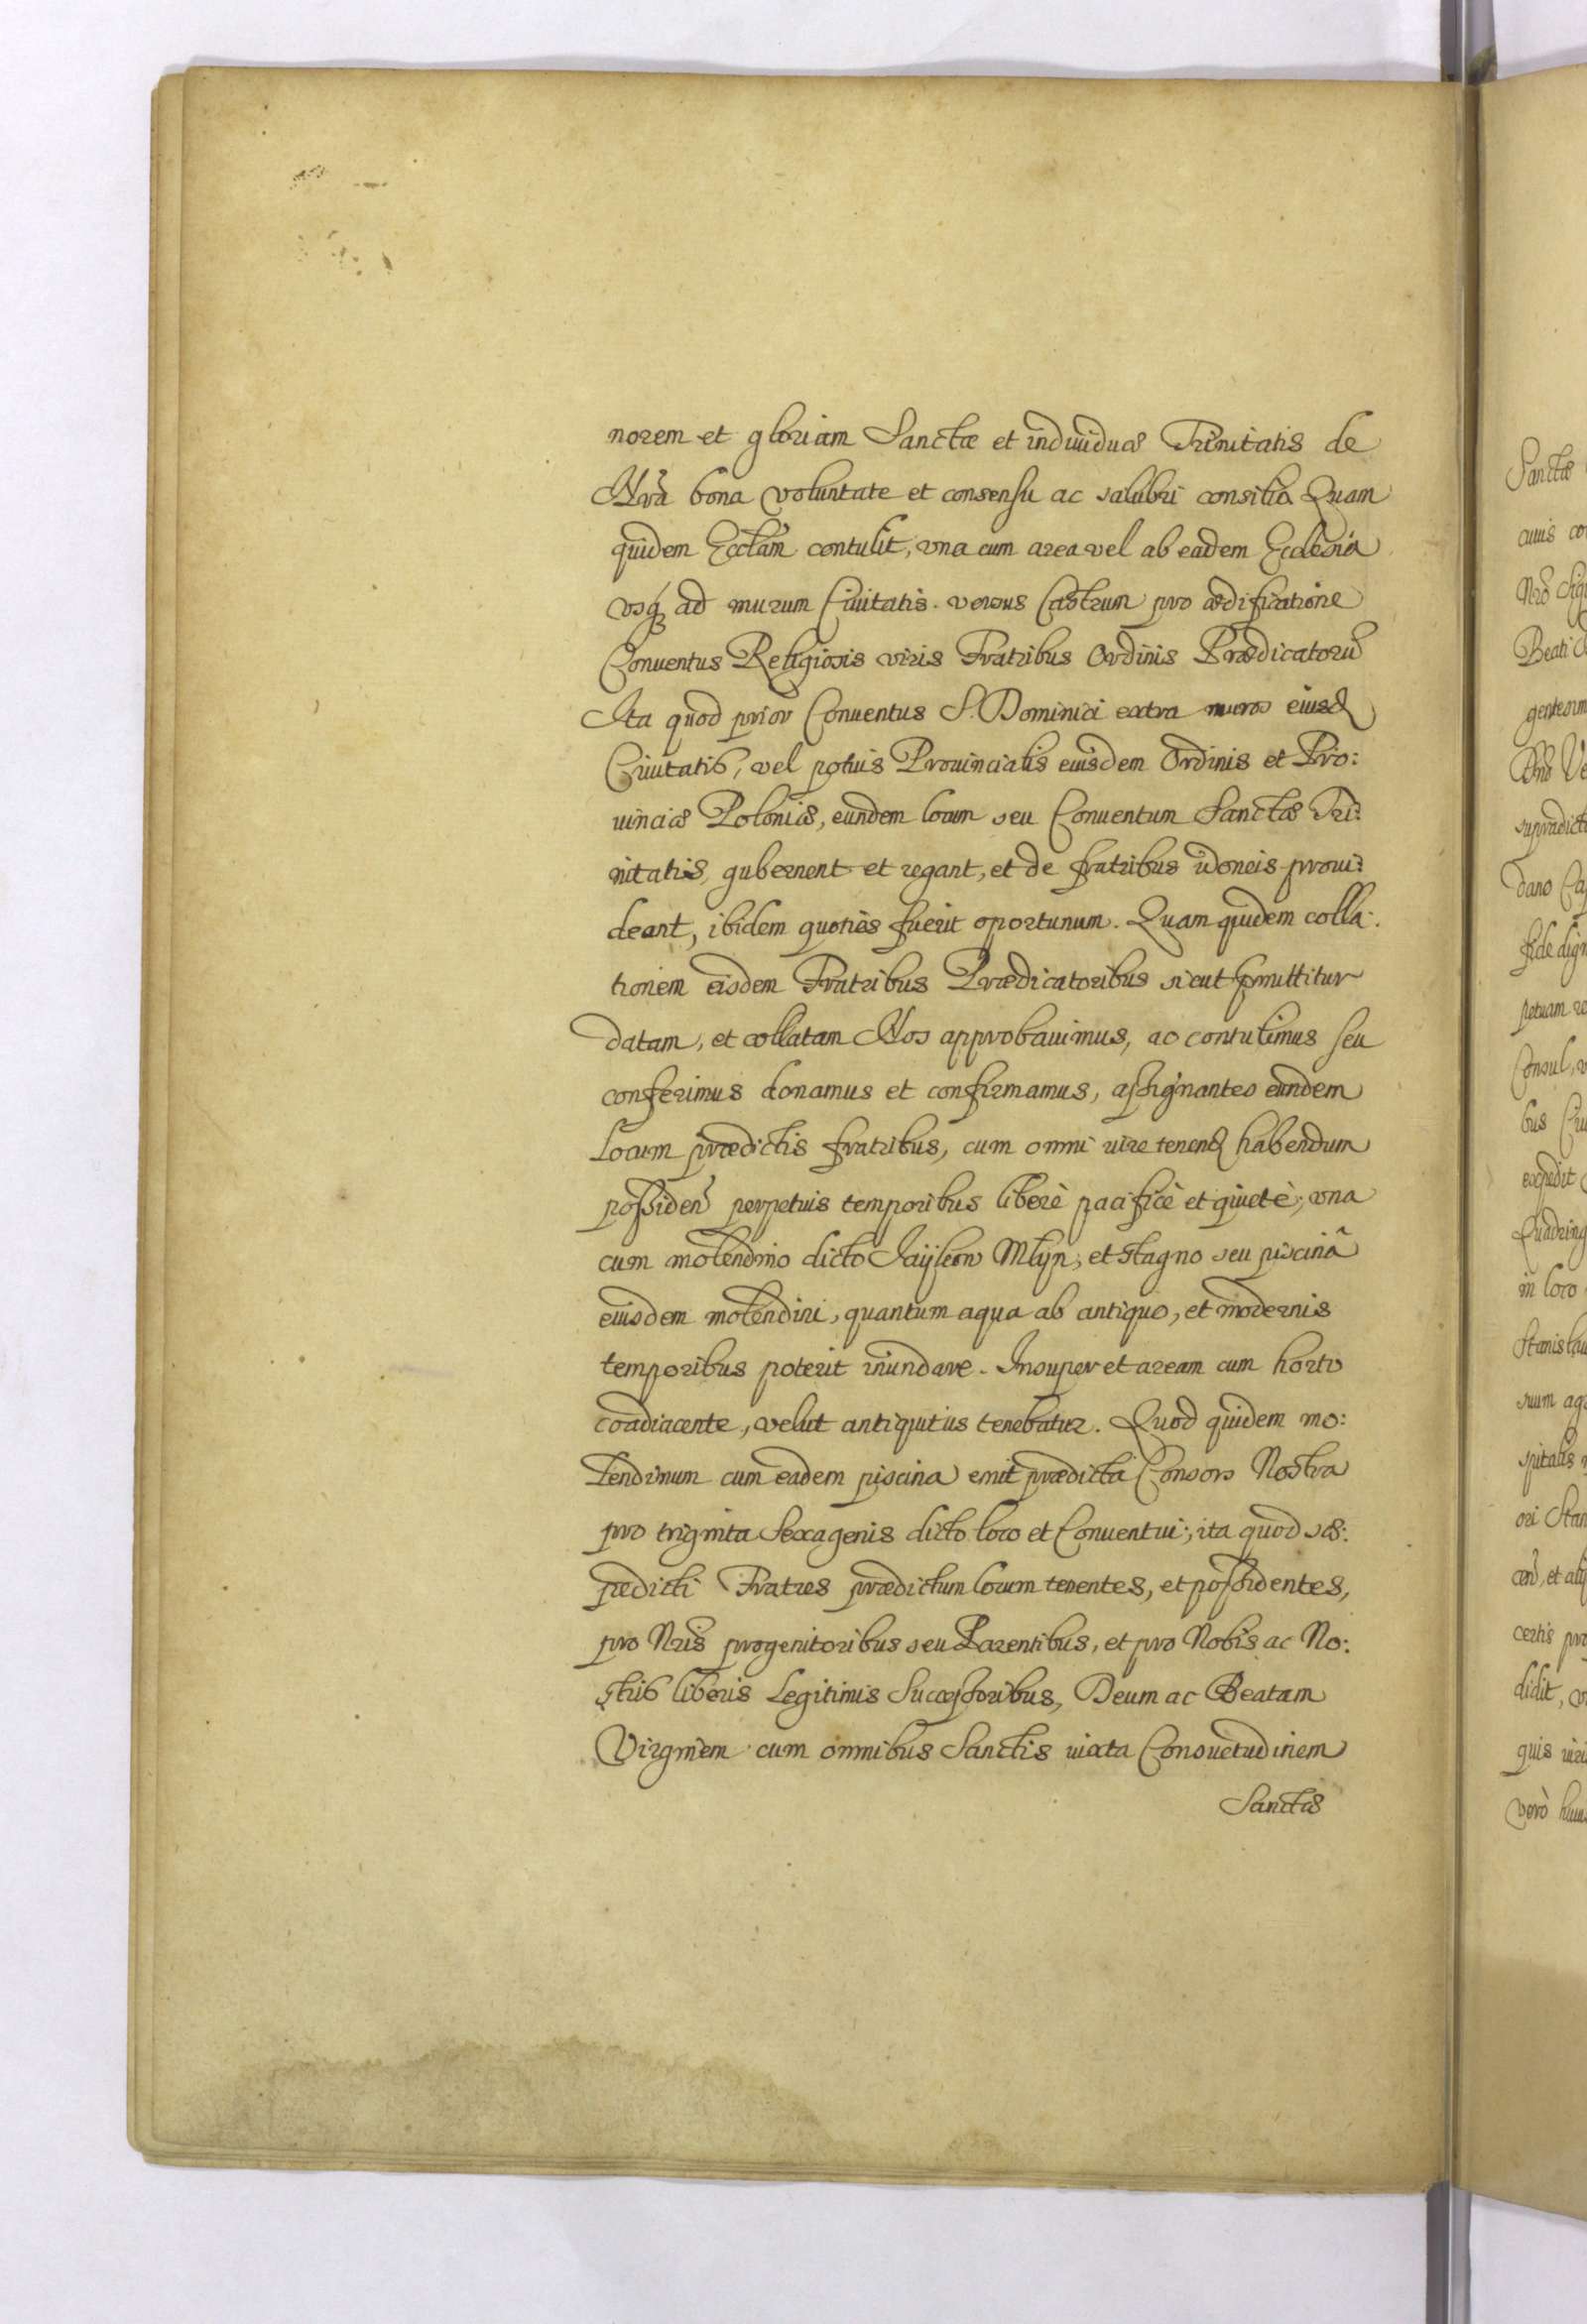 norem et gloriam Sanctæ et indiuiduæ Trinitatis de
Nrã bona voluntate et consensu ac salubri consilio. Quam
quidem Eccłam contulit, vna cum area vel ab eadem Ecclesia
vsq̃ ad murum Ciuitatis versus Castrum pro ædificatione
Conuentus Religiosis viris Fratribus Ordinis Prædicatorũ
Ita quod prior Conuentus S. Dominici extra muros eiusd̃
Ciuitatis, vel potius Prouincialis eiusdem Ordinis et Pro:
uinciæ Poloniæ, eundem locum seu Conuentum Sanctæ Tri:
nitatis, gubernent et regant, et de fratribus idoneis proui:
deant, ibidem quoties fuerit oportunum. Quam quidem colla:
tionem eisdem Fratribus Prædicatoribus sicut præmittitur
datam, et collatam Nos approbauimus, ac contulimus seu
conferimus donamus et confirmamus, assignantes eundem
Locum prædictis fratribus, cum omni iure tenend̃ habendum
possidend̃ perpetuis temporibus liberè pacificè et quietè, vna
cum molendino dicto Mlyn, et stagno seu piscinâ
eiusdem molendini, quantum aqua ab antiquo, et modernis
temporibus poterit inundare. Insuper et aream cum horto
coadiacente, velut antiquitus tenebatur. Quod quidem mo:
lendinum cum eadem piscina emit prædicta Consors Nostra
pro triginta Sexagenis dicto loco et Conuentui, ita quod sæ:
pedicti Fratres prædictum locum tenentes, et possidentes,
pro Nris̃ progenitoribus seu Parentibus, et pro Nobis ac No:
stris liberis Legitimis Successoribus, Deum ac Beatam
Virginem cum omnibus Sanctis iuxta Consuetudinem
Sanctæ